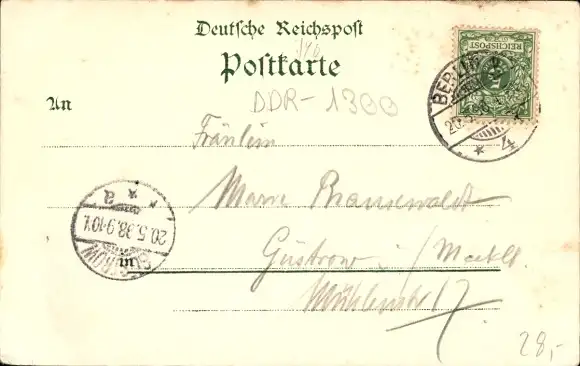 Deutsche Reichspost
Postkarte
DDR-1300
An
Fräulein
Marie
Güstrow i/Meckl.
in
Mühlenstr 17
REICHSPOST
5
BERLIN
20.5.98
* 4
* a *
20.5.98.9-10V.
GÜSTROW
28,-